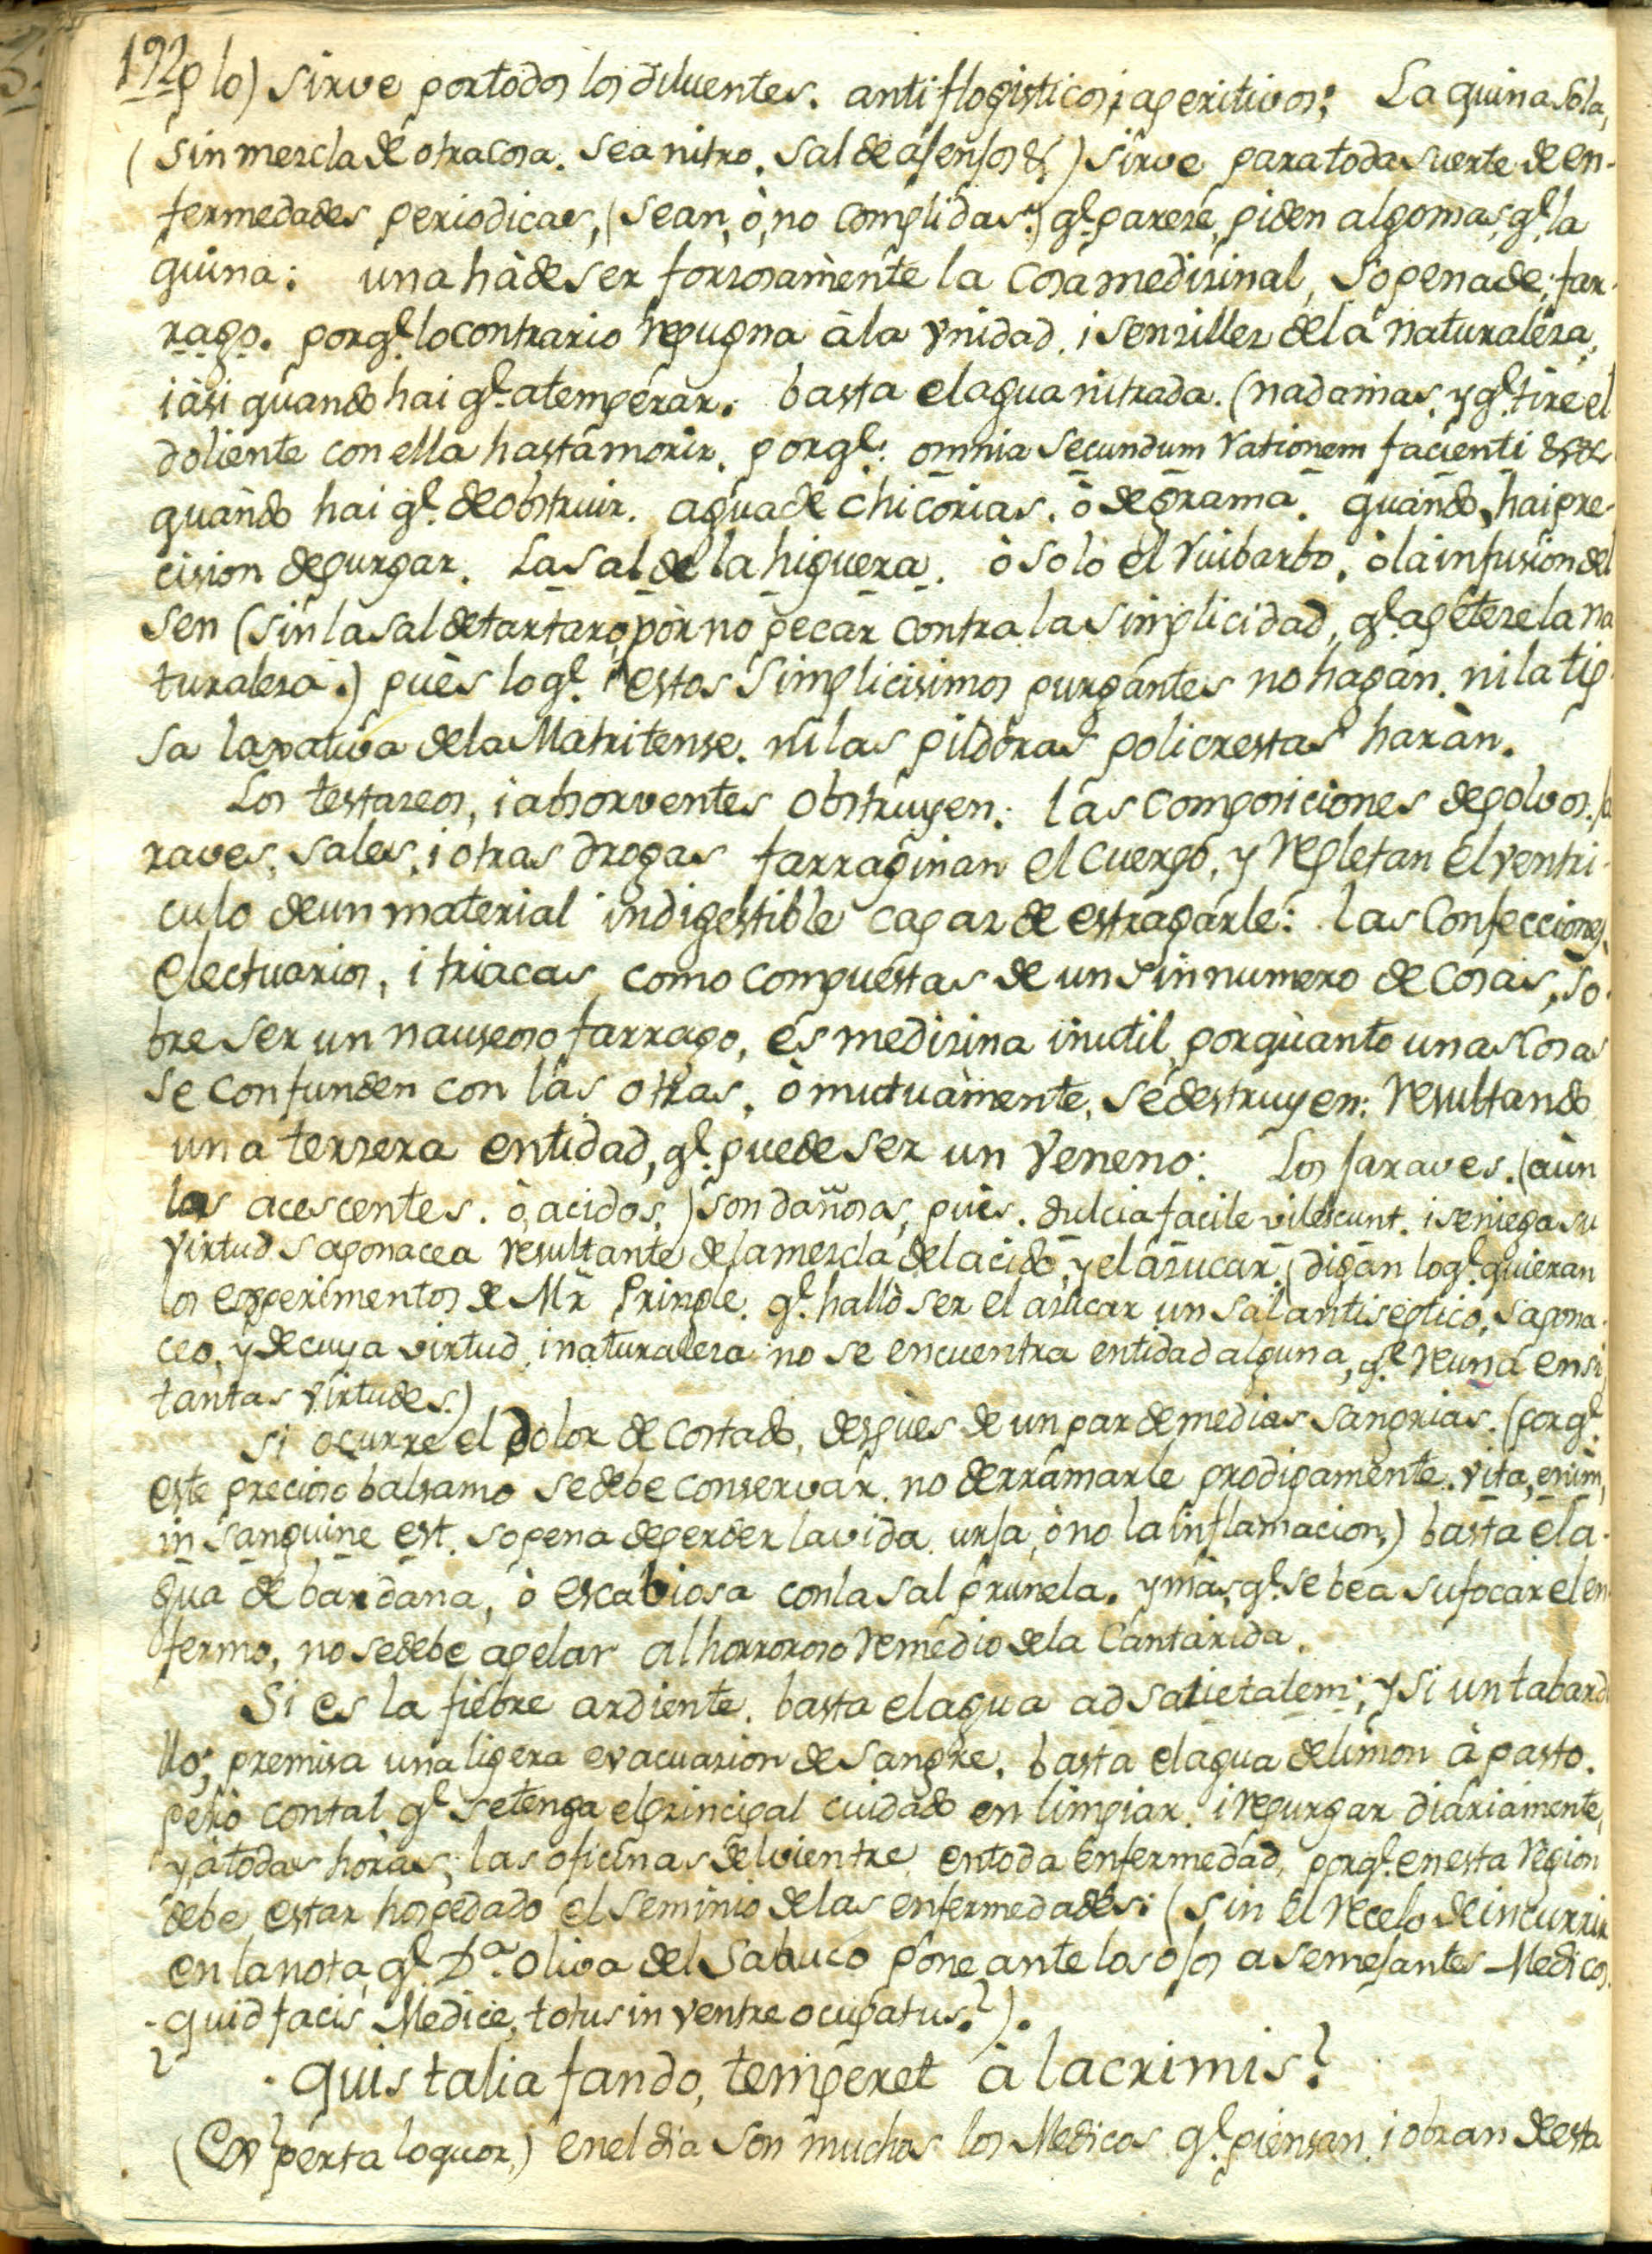 192
plo) sirve por todos los diluentes. antiflogisticos; i aperitivos: La quina sola,
(sin mezcla de otra cosa. sea nitro. sal de asensos &.) sirve para toda suerte de en-
fermedades periodicas, (sean, ò, no complidas.) q.e parezé, piden algo mas, q.e la
quina: una hà de ser forzosamente la cosa medizinal, so pena de; far-
rago. porq.e lo contrario repugna à la Ynidad. i senzillez de la naturaleza,
i àsi quando hai q.e atempérar. basta el agua nitrada. (nada mas, y q.e tire el
doliente con ella hasta morir. porq.e: omnia secundum rationem facienti &
quàndo hai q.e deobstruir. agua de chicorias. ò de grama. quàndo, hai pre-
cision de purgar. La sal de la higuera. ò solo el ruibarbo. ò la infusion del
sen (sin la sal de tartaro, pòr no pecar contra la simplicidad, q.e apeteze la na
turaleza.) puès lo q.e estos simplicisimos purgantes no hagan. ni la tip-
sa laxativa de la Matritense. ni las pildoras policrestas haràn.
Los testazeos, i absorventes obstruyen: las composiciones de polvos. ja
raves. sales. i otras drogas farraginan el cuerpo, y repletan el ventri-
culo de un material indigestible capaz de estragarle: las Confecciones,
electuarios, i triacas como compuestas de un sin numero de cosas, so-
bre ser un nauseoso farrago, es medizina inutil, por quànto unas cosas
se confunden con las otras, ò mutuàmente, se destruyen: resultando
una terzera entidad, q.e puede ser un veneno: Los jaraves. (aùn
los acescentes. ò, acidos,) son dañosos, puès. dulcia facile vilescunt. i se niega su
virtud saponacea resultante de la mezcla del acido, y el azucar. (digan lo q.e quieran
los experimentos de Mr. Pringle. q.e hallò ser el azucar un sal antiseptico, sapona-
ceo, y de cuya virtud, i naturaleza no se encuentra entidad alguna, q.e reuna en si
tantas virtudes.)
Si ocurre el dolor de costado, despùes de un par de medias sangrias. (porq.e
este precioso balsamo se debe conservar. no derramarle prodigamente. vita, enim,
in sanguine est. so pena de perder la vida. urja, ò no la inflamacion.) basta el a-
gua de bardana, ò escabiosa con la sal prunela. y màs, q.e se bea sufocar el en
fermo, no se debe apelar al horroroso remedio de la Cantarida.
Si es la fiebre ardiente. basta el agua ad satietatem; y si un tabard
llo; premisa una ligera evacuazion de sangre. basta el agua de limon à pasto.
pero con tal q.e se tenga el principal cuidado en limpiar. i repurgar diariamente,
y, à todas horas, las oficinas del vientre en toda enfermedad, porq.e en esta region
debe estar hospedado el seminio de las enfermedades: (sin el recelo de incurrir
en la nota q.e D.a Oliva del Sabuco pone ante los ojos a semejantes Medicos.
- quid facis Medice, totus in ventre ocupatus?).
· quis talia fando, temperet à lacrimis?
(Experta loquor,) en el dia son muchos los Medicos q.e piensan i obran de esta